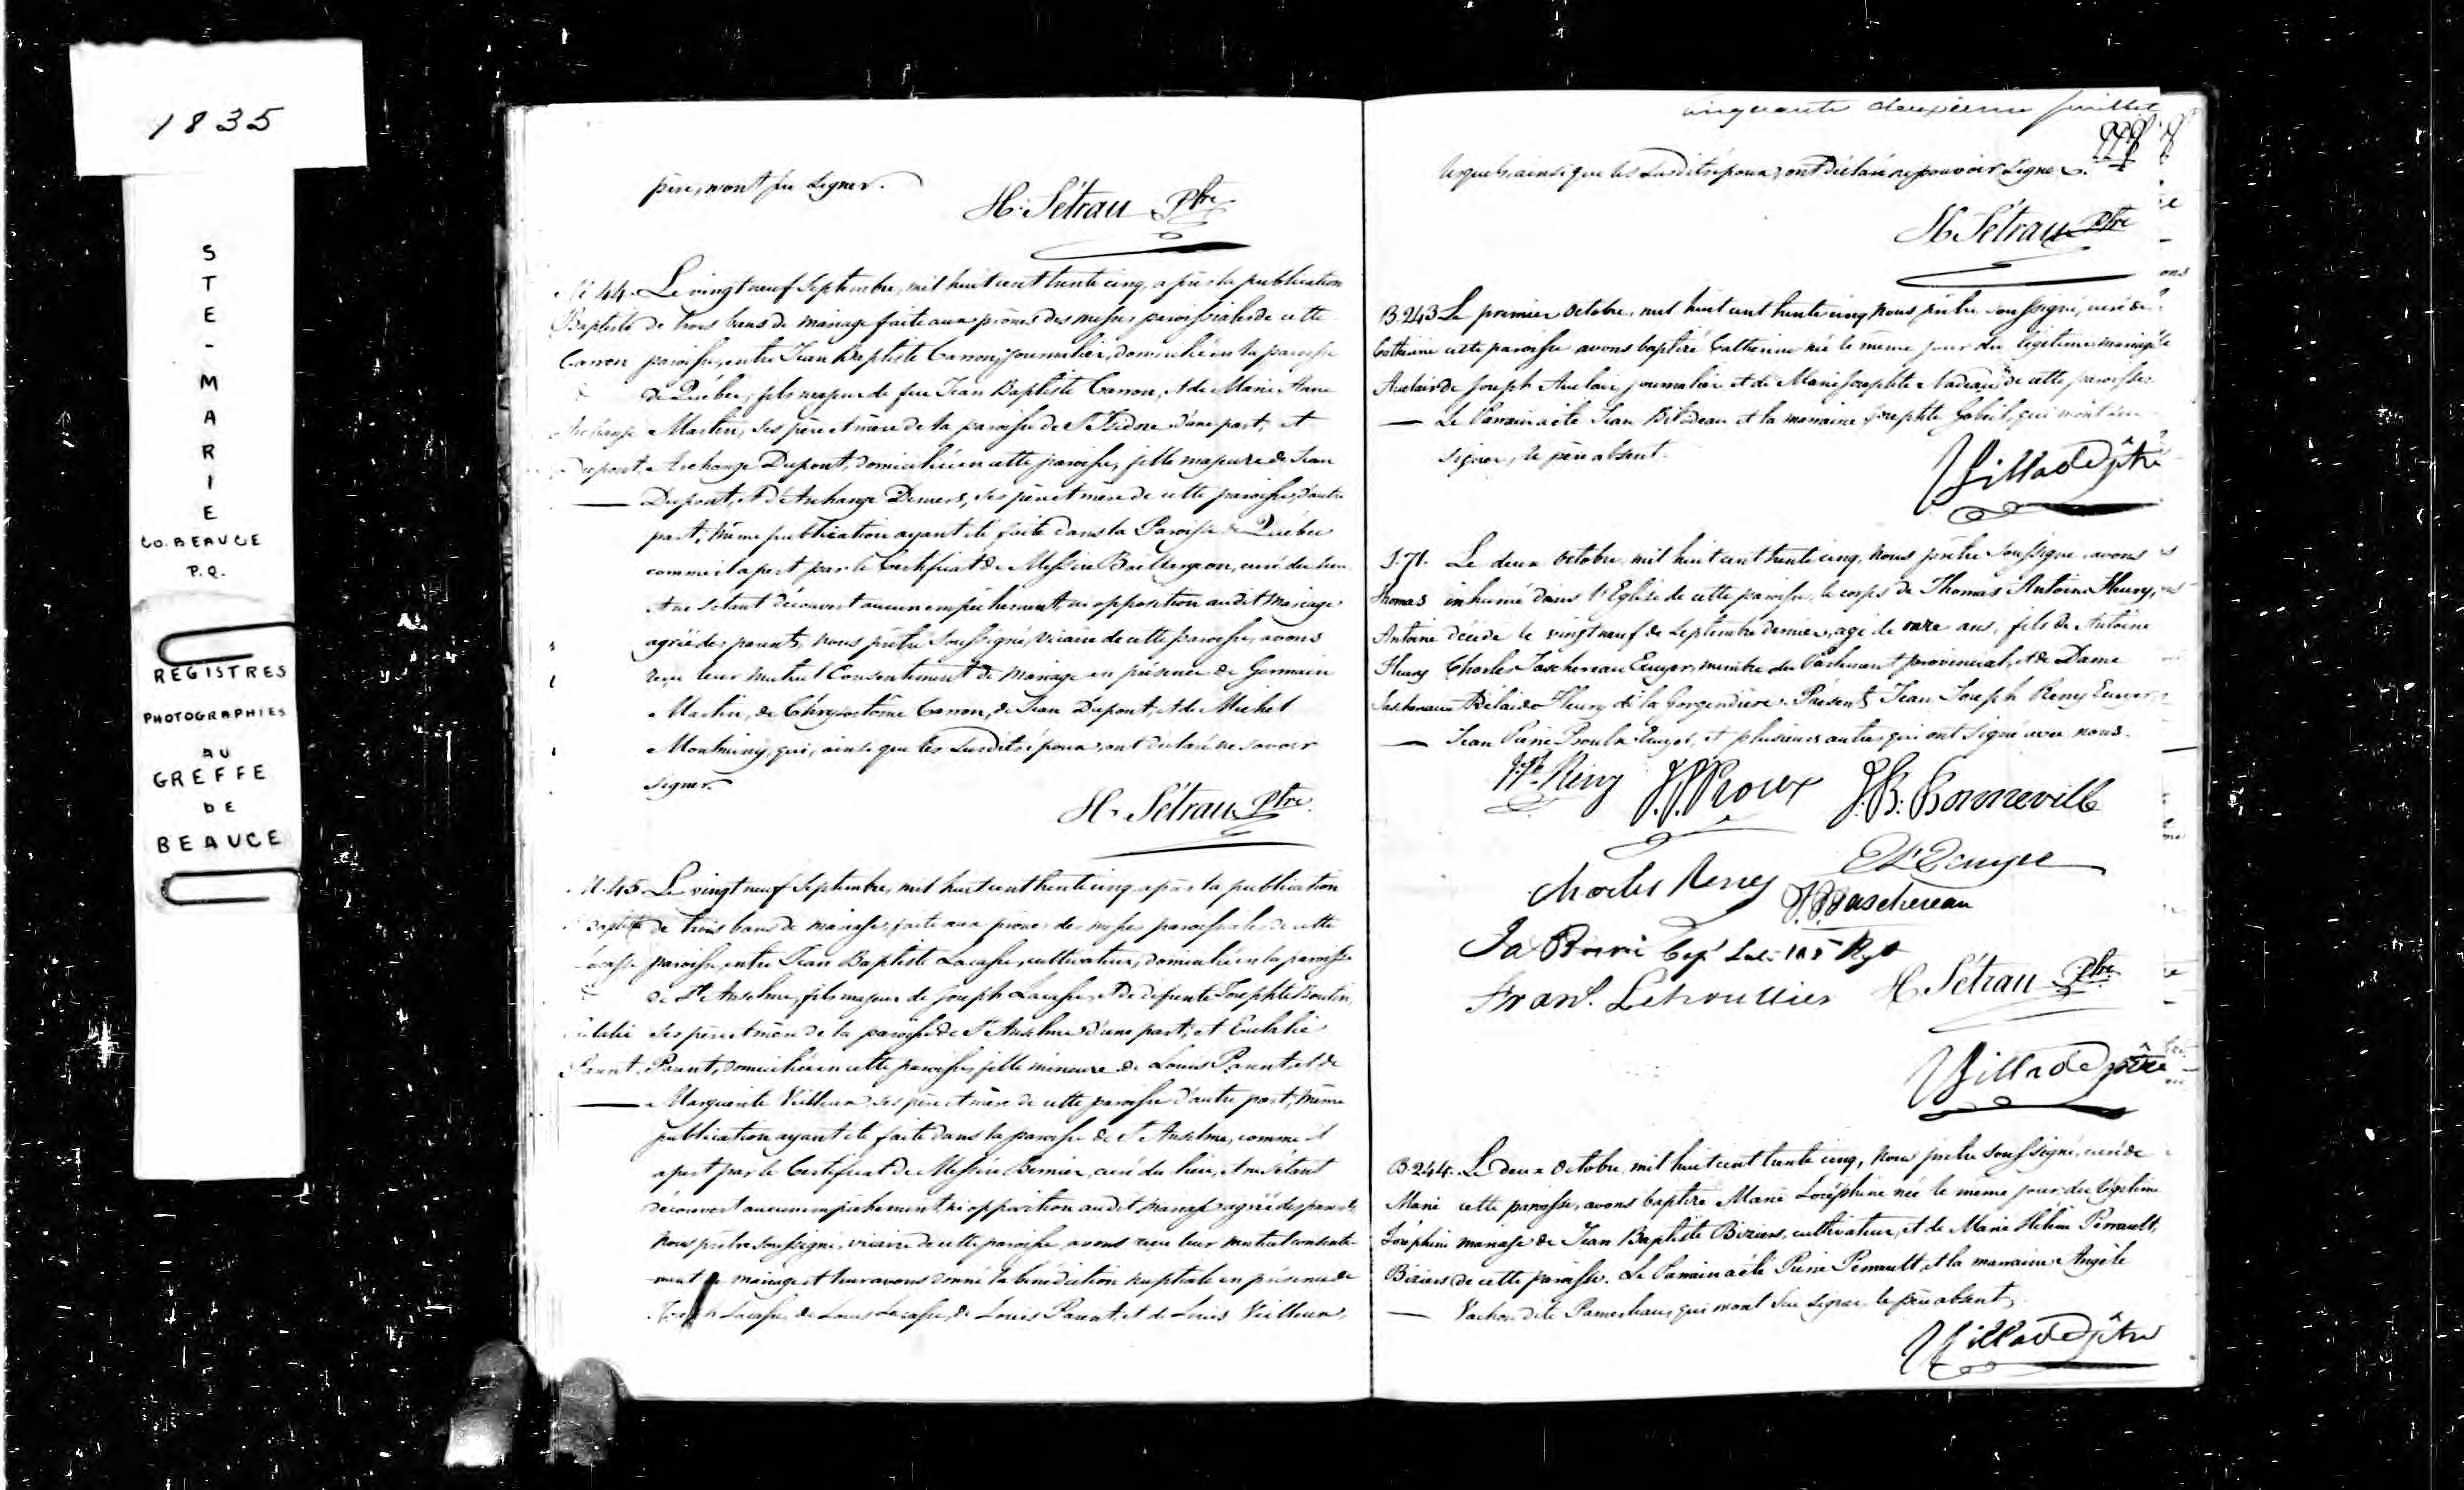 1835
STE-MARIE
CO. BEAUCE
P.Q.
REGISTRES
PHOTOGRAPHIES
AU
GREFFE
DE
BEAUCE
père, n'ont pu signer.
H. Sétrau Ptre
M. 44. Le vingt neuf Septembre, mil huit cent trente cinq, après la publication
Baptiste de trois bans de mariage faite aux prônes des messes paroissiales de cette
Carron paroisse, entre Jean Baptiste Carron, journalier, domicilié en la paroisse
& de Québec, fils majeur de feu Jean Baptiste Carron, et de Marie Anne
Archange Martin, ses père et mère de la paroisse de St Isidore d'une part, et
Dupont. Archange Dupont, domiciliée en cette paroisse, fille majeure de Jean
Dupont, et d'Archange Demers, ses père et mère de cette paroisse, d'autre
part; même publication ayant été faite dans la Paroisse de Québec
comme il apert par le Certificat de Messire Baillargeon, curé du lieu
et ne s'étant découvert aucun empêchement, ni opposition audit Mariage
agréé des parents, nous prêtre soussigné, vicaire de cette paroisse, avons
reçu leur mutuel Consentement de mariage en présence de Germain
Martin, de Chrysostôme Carron, de Jean Dupont, et de Michel
Montminy, qui, ainsi que les susdits époux, ont déclaré ne savoir
signer.
H. Sétrau Ptre
M. 45. Le vingt neuf Septembre, mil huit cent trente cinq, après la publication
Baptiste de trois bans de mariage, faite aux prônes des messes paroissiales de cette
Lacasse paroisse, entre Jean Baptiste Lacasse, cultivateur, domicilié en la paroisse
& de St Anselme, fils majeur de Joseph Lacasse, et de defunte Josephte Boutin,
Eulalie ses père et mère de la paroisse de St Anselme d'une part; et Eulalie
Parent. Parent, domiciliée en cette paroisse, fille mineure de Louis Parent, et de
Marguerite Veilleux ses père et mère de cette paroisse d'autre part; même
publication ayant été faite dans la paroisse de St Anselme, comme il
apert par le Certificat de Messire Bernier, curé du lieu, et ne s'étant
découvert aucun empêchement, ni opposition audit mariage agréé des parents
Nous prêtre soussigné, vicaire de cette paroisse, avons reçu leur mutuel consente-
ment de mariage et leur avons donné la bénédiction nuptiale en présence de
Joseph Lacasse, de Louis Lacasse, de Louis Parent, et de Louis Veilleux,
cinquante deuxième feuillet
lesquels, ainsi que les susdits époux, ont déclaré ne pouvoir signer.
H. Sétrau Ptre
B. 243 Le premier Octobre, mil huit cent trente cinq, nous prêtre soussigné, curé de
Catherine cette paroisse avons baptisé Catherine née le même jour du légitime mariage
Auclair de Joseph Auclair, journalier et de Marie Josephte Nadeau de cette paroisse.
Le Parrain a été Jean Bilodeau et la marraine Josephte qui n'ont su
signer, le père absent.
Villade ptre
S. 71. Le deux Octobre, mil huit cent trente cinq, nous prêtre soussigné, avons
Thomas inhumé dans l'Eglise de cette paroisse, le corps de Thomas Antoine Fleury,
Antoine décédé le vingt neuf de Septembre dernier, agé de onze ans, fils de Antoine
Fleury Charles Taschereau Ecuyer, membre du Parlement provincial, et de Dame
Taschereau Adélaïde Fleury de la Gorgendière. Présents Jean Joseph Reny Ecuyer,
Jean Pierre Proulx Ecuyer, et plusieurs autres qui ont signé avec nous.
J.J. Reny J.P. Proux J.B. Bonneville
Charles Reney
Taschereau
Fran. Lehoullier H. Sétrau Ptre
Villade ptre
B. 244. Le deux Octobre, mil huit cent trente cinq, Nous prêtre soussigné, curé de
Marie cette paroisse, avons baptisé Marie Joséphine née le même jour du légitime
Joséphine mariage de Jean Baptiste Biziers, cultivateur, et de Marie Hélène Perrault,
Biziers de cette paroisse. Le Parrain a été Pierre Perrault et la marraine Angèle
Vachon dite Pamerleau, qui n'ont su signer, le père absent.
Villade ptre